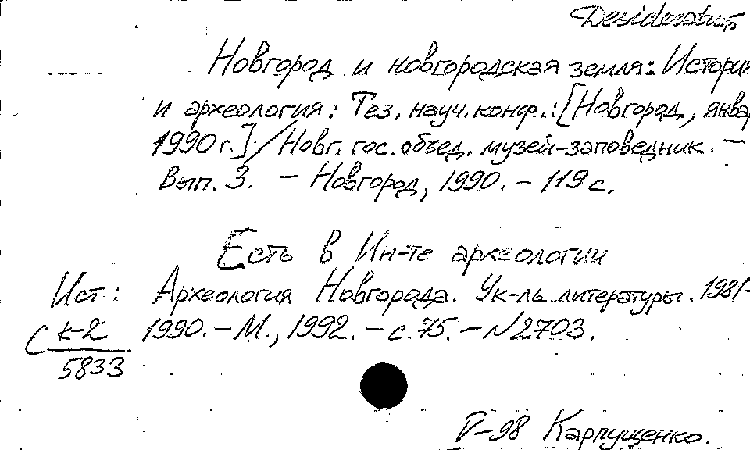 Desiderata
Новгород и новгородская земля: Истори
и археология: Тез. науч. конф.: [Новгород, янва
1990 г.] / Новг. гос. объед. музей-заповедник. –
Вып. 3. – Новгород, 1990. – 119 с.
Есть в Ин-те археологии
Ист.: Археология Новгорода. Ук-ль литературы. 1981-
( К-2 1990. – М., 1992. – с. 75. – №2703.
5833
V-98 Карпущенко.